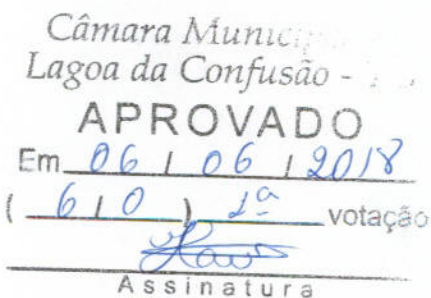 Câmara Munici
Lagoa da Confusão -
APROVADO
Em 06 / 06 / 2018
( 6 / 0 ) 1ª votação
Assinatura